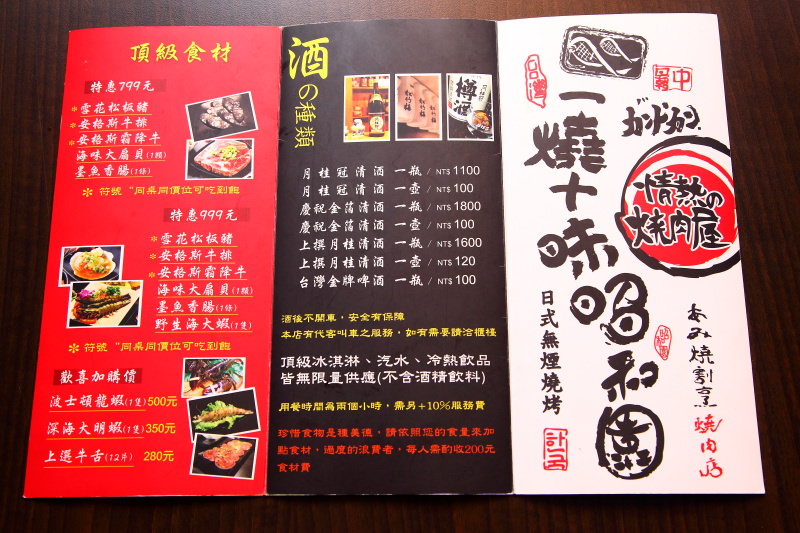 頂級食材
特惠799元
*雪花松板豬
*安格斯牛排
*安格斯霜降牛
海味大扇貝(1顆)
墨魚香腸(1條)
* 符號"同桌同價位可吃到飽
特惠999元
*雪花松板豬
*安格斯牛排
*安格斯霜降牛
海味大扇貝(1顆)
墨魚香腸(1條)
野生海大蝦(1隻)
* 符號"同桌同價位可吃到飽
歡喜加購價
波士頓龍蝦(1隻)500元
深海大明蝦(1隻)350元
上選牛舌(12片) 280元
酒の種類
樽酒
月桂冠清酒 一瓶 / NT$ 1100
月桂冠清酒 一壺 / NT$ 100
慶祝金箔清酒 一瓶 / NT$ 1800
慶祝金箔清酒 一壺 / NT$ 100
上撰月桂清酒 一瓶 / NT$ 1600
上撰月桂清酒 一壺 / NT$ 120
台灣金牌啤酒 一瓶 / NT$ 100
酒後不開車，安全有保障
本店有代客叫車之服務，如有需要請洽櫃檯
頂級冰淇淋、汽水、冷熱飲品
皆無限量供應(不含酒精飲料)
用餐時間為兩個小時，需另+10%服務費
珍惜食物是種美德，請依照您的食量來加
點食材，過度的浪費者，每人需酌收200元
食材費
台灣
一燒十味昭和園
日式無煙燒烤
情熱の
燒肉屋
あみ燒割烹
燒肉店